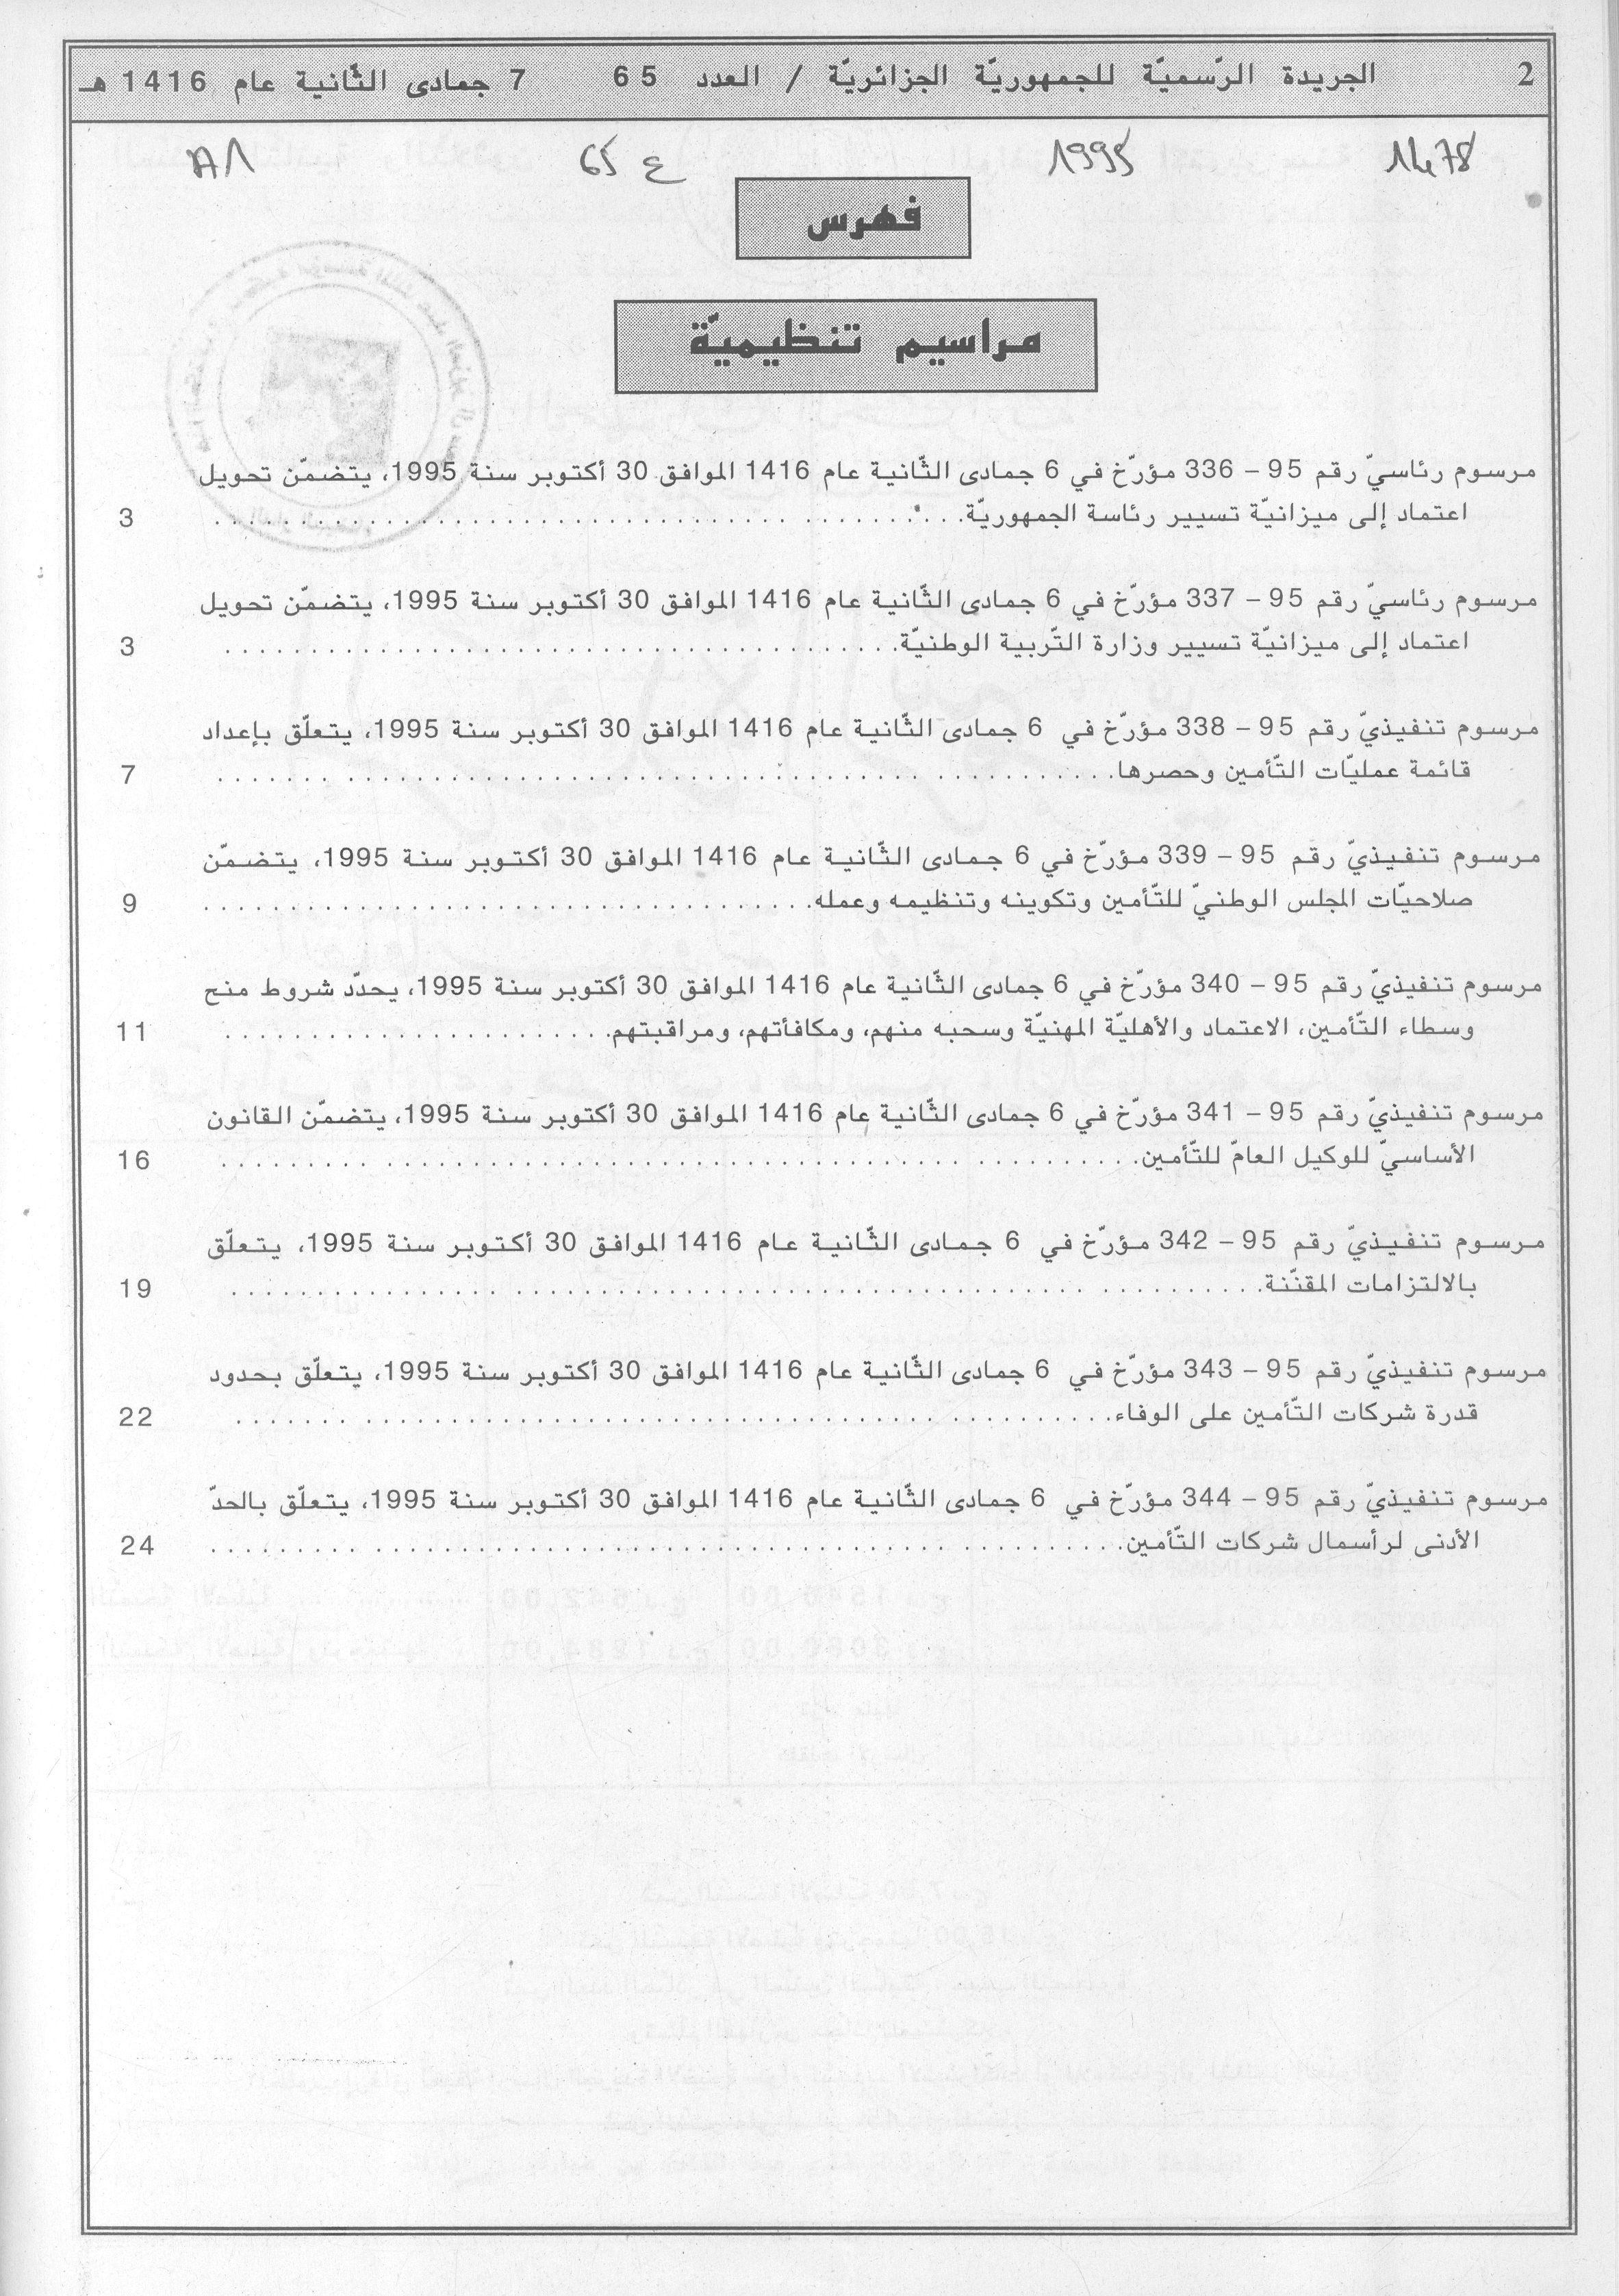 2 الجريدة الرّسميّة للجمهوريّة الجزائريّة / العدد 65 7 جمادى الثّانية عام 1416 هـ
1478 1995 ع 65 A1
فهرس
مراسيم تنظيميّة
مرسوم رئاسيّ رقم 95 – 336 مؤرّخ في 6 جمادى الثّانية عام 1416 الموافق 30 أكتوبر سنة 1995، يتضمّن تحويل
اعتماد إلى ميزانيّة تسيير رئاسة الجمهوريّة. . . . . . . . . . . . . . . . . . . . . . . . . . . . . . 3
مرسوم رئاسيّ رقم 95 – 337 مؤرّخ في 6 جمادى الثّانية عام 1416 الموافق 30 أكتوبر سنة 1995، يتضمّن تحويل
اعتماد إلى ميزانيّة تسيير وزارة التّربية الوطنيّة. . . . . . . . . . . . . . . . . . . . . . . . . . . . . . 3
مرسوم تنفيذيّ رقم 95 – 338 مؤرّخ في 6 جمادى الثّانية عام 1416 الموافق 30 أكتوبر سنة 1995، يتعلّق بإعداد
قائمة عمليّات التّأمين وحصرها. . . . . . . . . . . . . . . . . . . . . . . . . . . . . . 7
مرسوم تنفيذيّ رقم 95 – 339 مؤرّخ في 6 جمادى الثّانية عام 1416 الموافق 30 أكتوبر سنة 1995، يتضمّن
صلاحيّات المجلس الوطنيّ للتّأمين وتكوينه وتنظيمه وعمله. . . . . . . . . . . . . . . . . . . . . . . . . . . . . . 9
مرسوم تنفيذيّ رقم 95 – 340 مؤرّخ في 6 جمادى الثّانية عام 1416 الموافق 30 أكتوبر سنة 1995، يحدّد شروط منح
وسطاء التّأمين، الاعتماد والأهليّة المهنيّة وسحبه منهم، ومكافأتهم، ومراقبتهم. . . . . . . . . . . . . . . . . . . . 11
مرسوم تنفيذيّ رقم 95 – 341 مؤرّخ في 6 جمادى الثّانية عام 1416 الموافق 30 أكتوبر سنة 1995، يتضمّن القانون
الأساسيّ للوكيل العامّ للتّأمين. . . . . . . . . . . . . . . . . . . . . . . . . . . . . . 16
مرسوم تنفيذيّ رقم 95 – 342 مؤرّخ في 6 جمادى الثّانية عام 1416 الموافق 30 أكتوبر سنة 1995، يتعلّق
بالالتزامات المقنّنة. . . . . . . . . . . . . . . . . . . . . . . . . . . . . . 19
مرسوم تنفيذيّ رقم 95 – 343 مؤرّخ في 6 جمادى الثّانية عام 1416 الموافق 30 أكتوبر سنة 1995، يتعلّق بحدود
قدرة شركات التّأمين على الوفاء. . . . . . . . . . . . . . . . . . . . . . . . . . . . . . 22
مرسوم تنفيذيّ رقم 95 – 344 مؤرّخ في 6 جمادى الثّانية عام 1416 الموافق 30 أكتوبر سنة 1995، يتعلّق بالحدّ
الأدنى لرأسمال شركات التّأمين. . . . . . . . . . . . . . . . . . . . . . . . . . . . . . 24